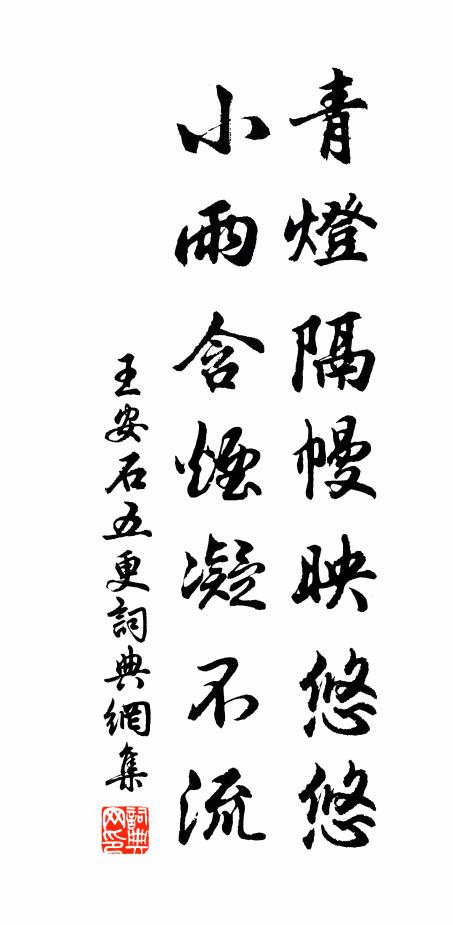 青燈隔幔映悠悠
小雨含煙凝不流
王安石五更詞典網集
詞典
网印